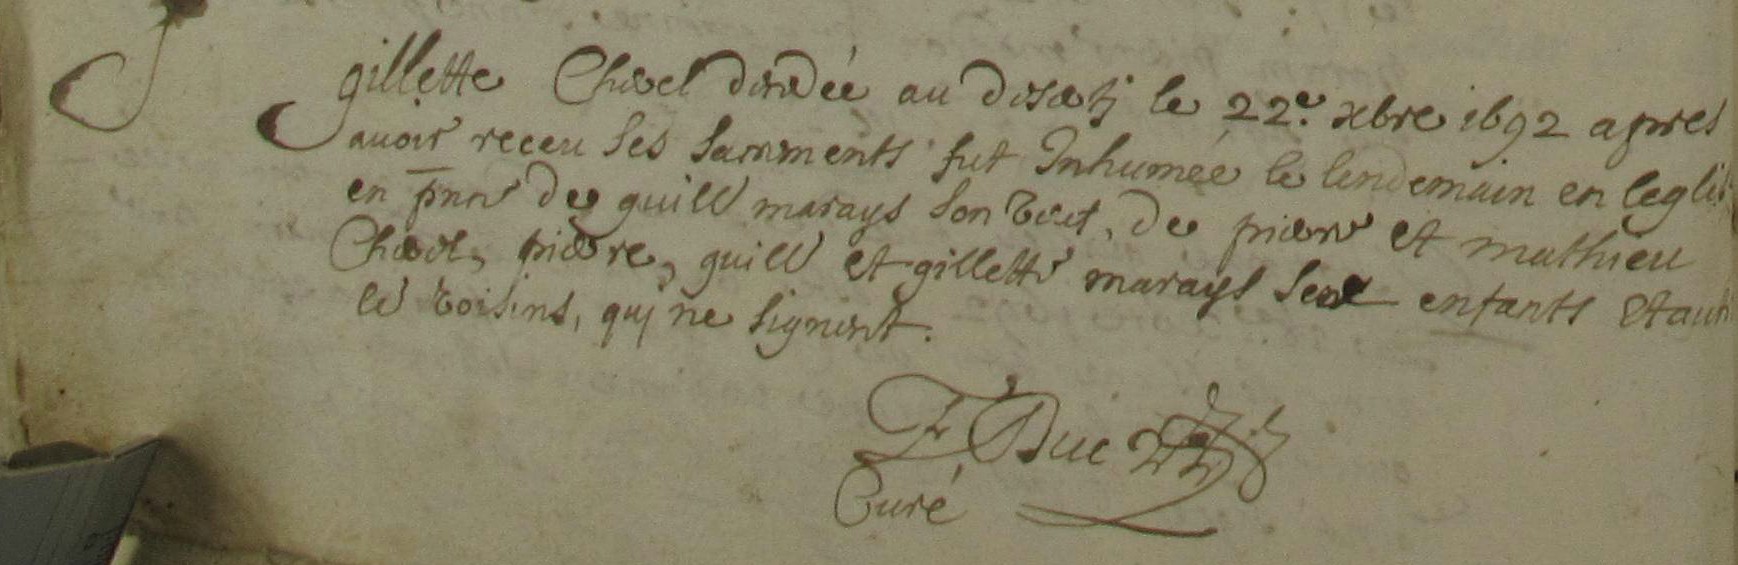 gillette Choel décédée au le 22e xbre 1692 apres
avoir receu ses sacrments fut Inhumée le lendemain en leglis
en pnce de guill marays son de pierre et mathieu
Choel, pierre, guill et gillette marays ses enfants et aut
le voisins, qui ne signent.
F Duc
Curé